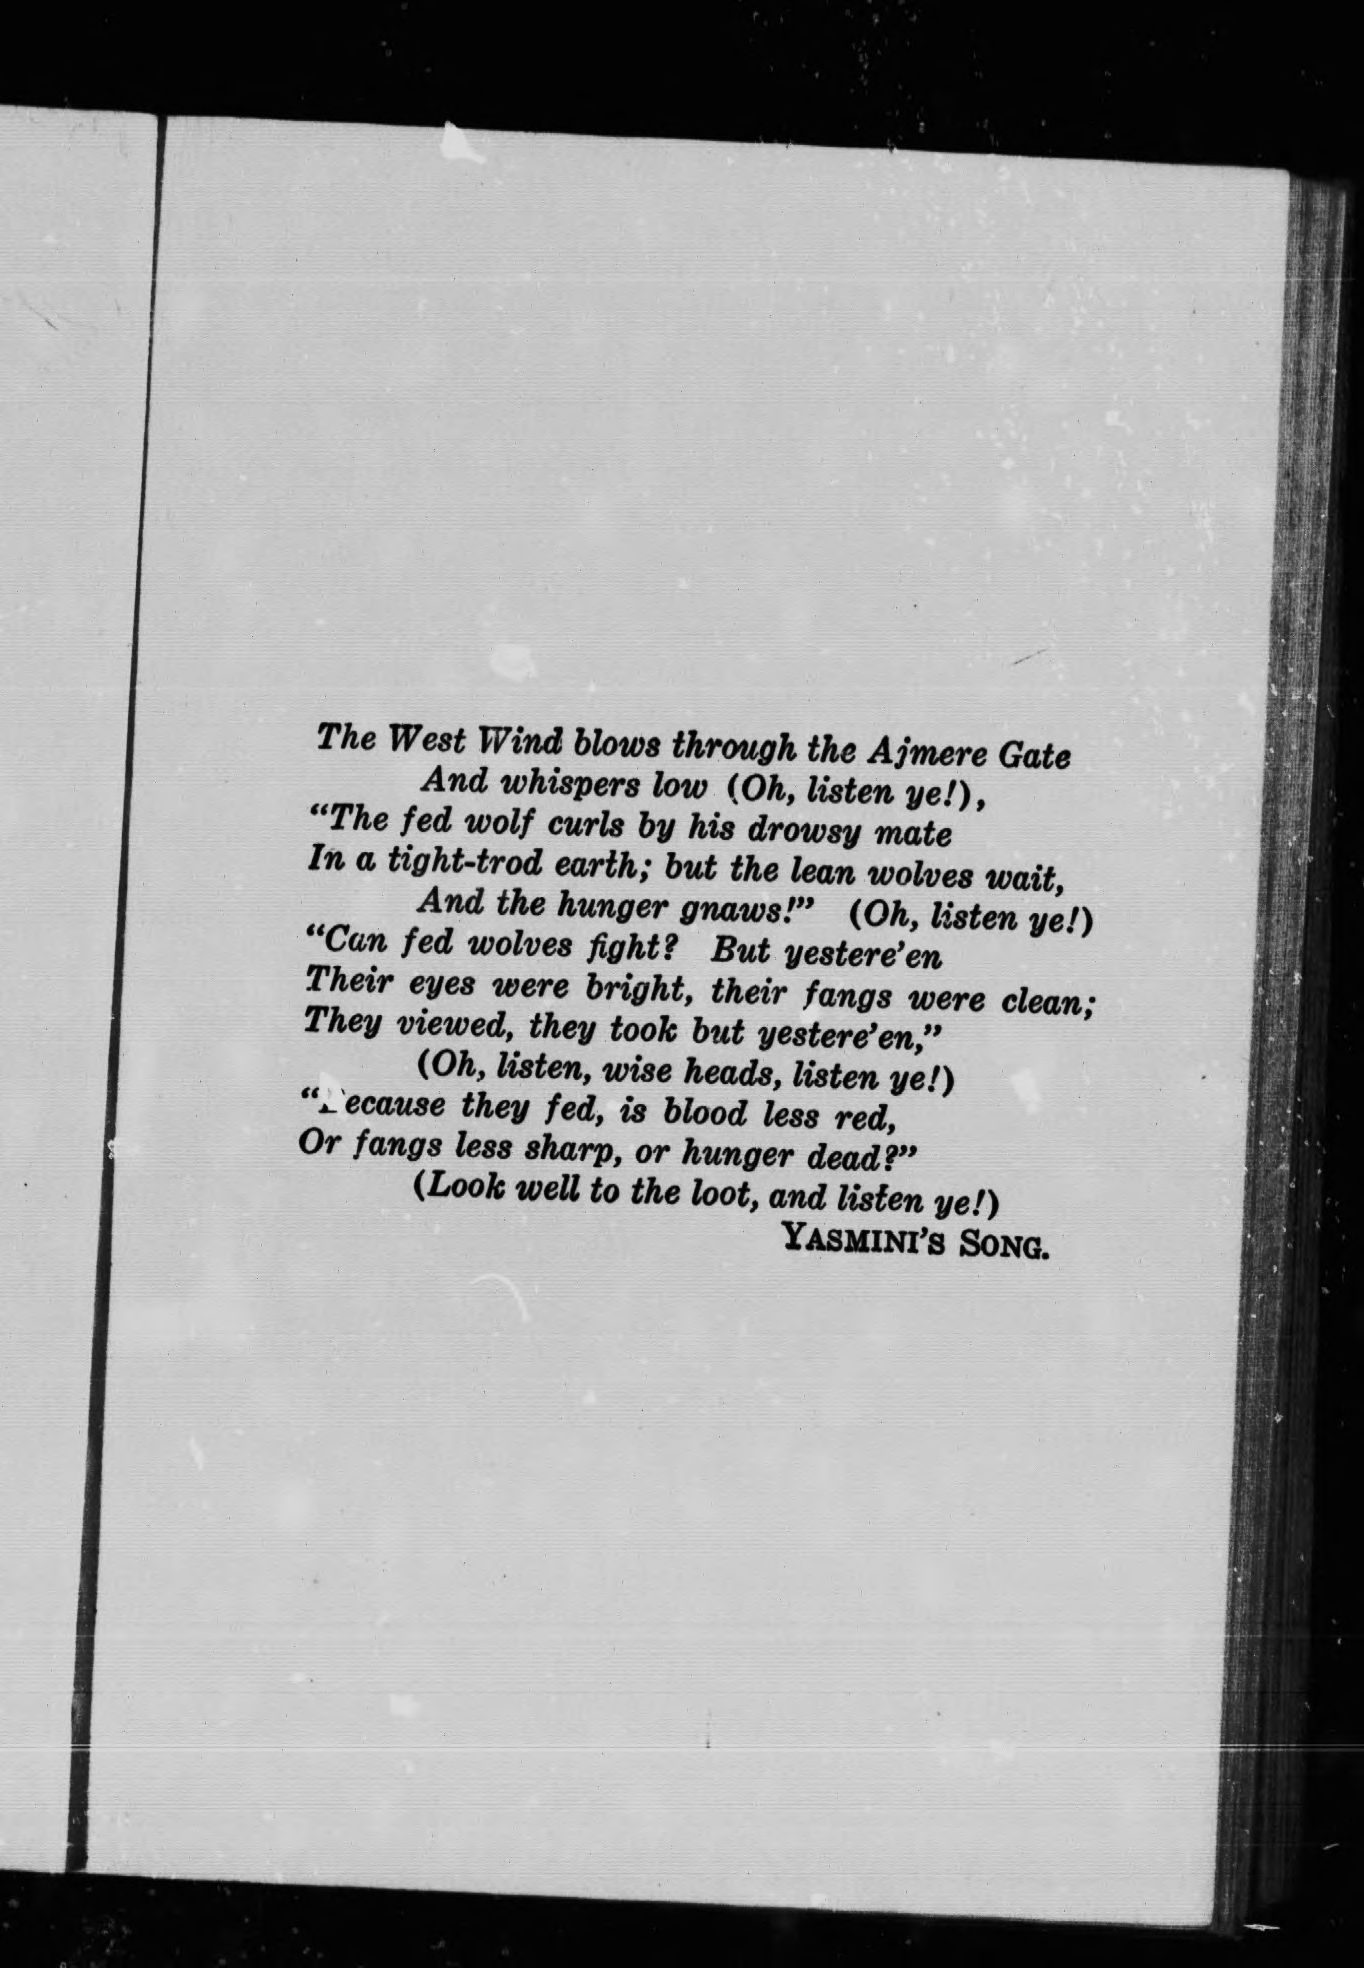 The West Wind blows through the Ajmere Gate
And whispers low (Oh, listen ye!),
“The fed wolf curls by his drowsy mate
In a tight-trod earth; but the lean wolves wait,
And the hunger gnaws!” (Oh, listen ye!)
“Can fed wolves fight? But yestere’en
Their eyes were bright, their fangs were clean;
They viewed, they took but yestere’en,”
(Oh, listen, wise heads, listen ye!)
“Because they fed, is blood less red,
Or fangs less sharp, or hunger dead?”
(Look well to the loot, and listen ye!)
YASMINI’S SONG.